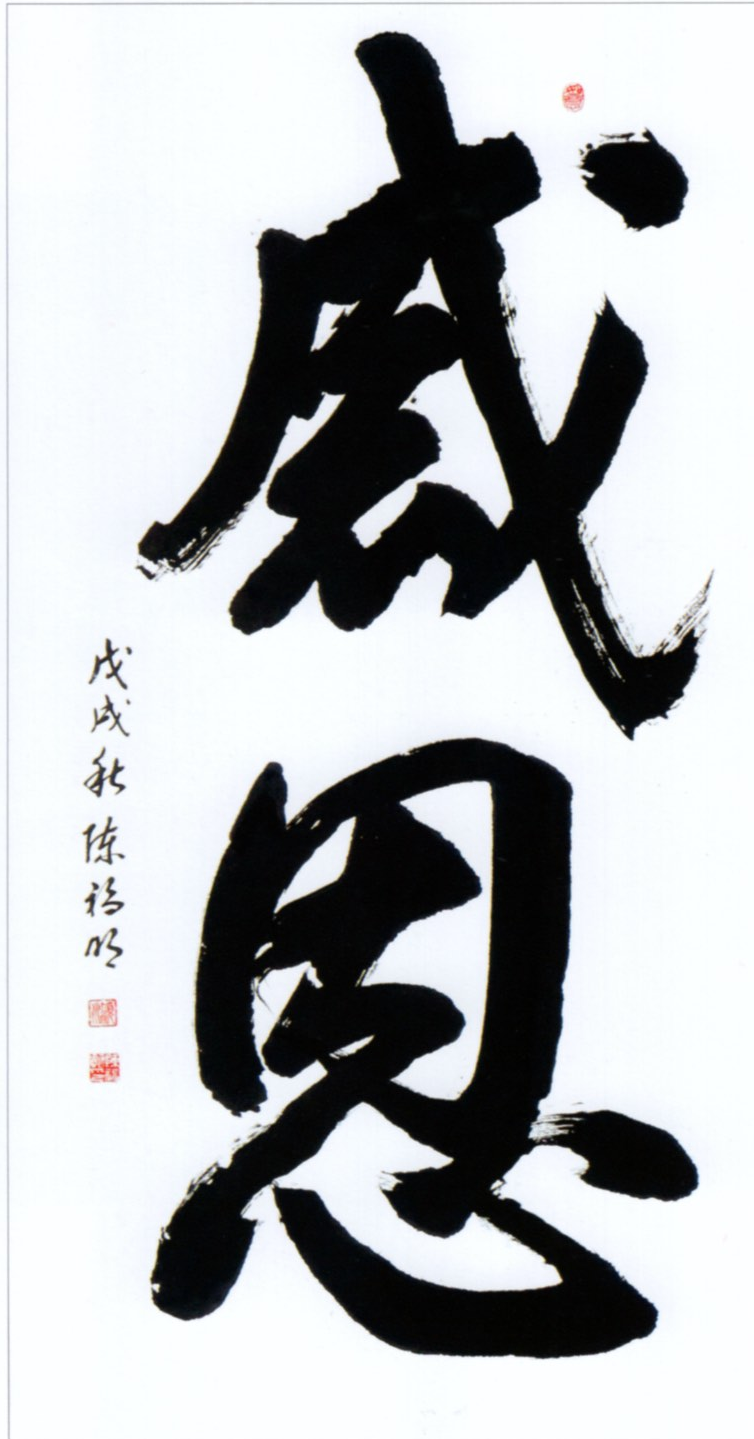 感恩
戊戌秋 陈福明